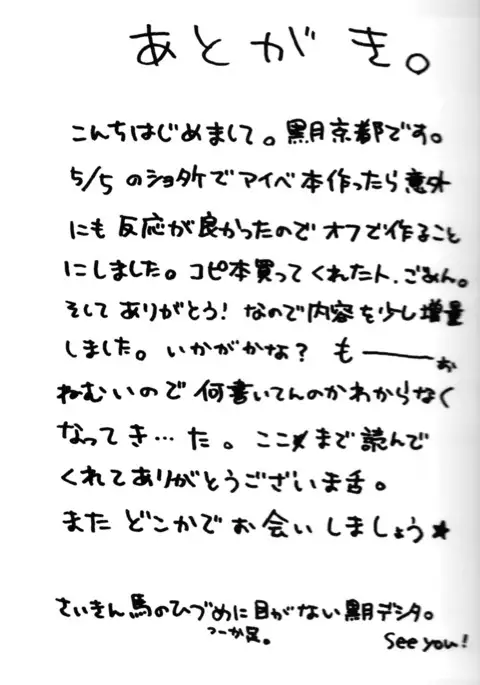 あとがき。
こんちはじめまして。黒月京都です。
5/5 のショタケでマイベ本作ったら意外
にも反応が良かったのでオフで作ること
にしました。コピ本買ってくれた人、ごめん。
そしてありがとう！なので内容を少し増量
しました。いかがかな？ も――――ぉ
ねむいので何書いてんのかわからなく
なってき…た。ここまで読んで
くれてありがとうございま舌。
またどこかでお会いしましょう★
さいきん馬のひづめに目がない黒月デシタ。
つーか足。
See you!